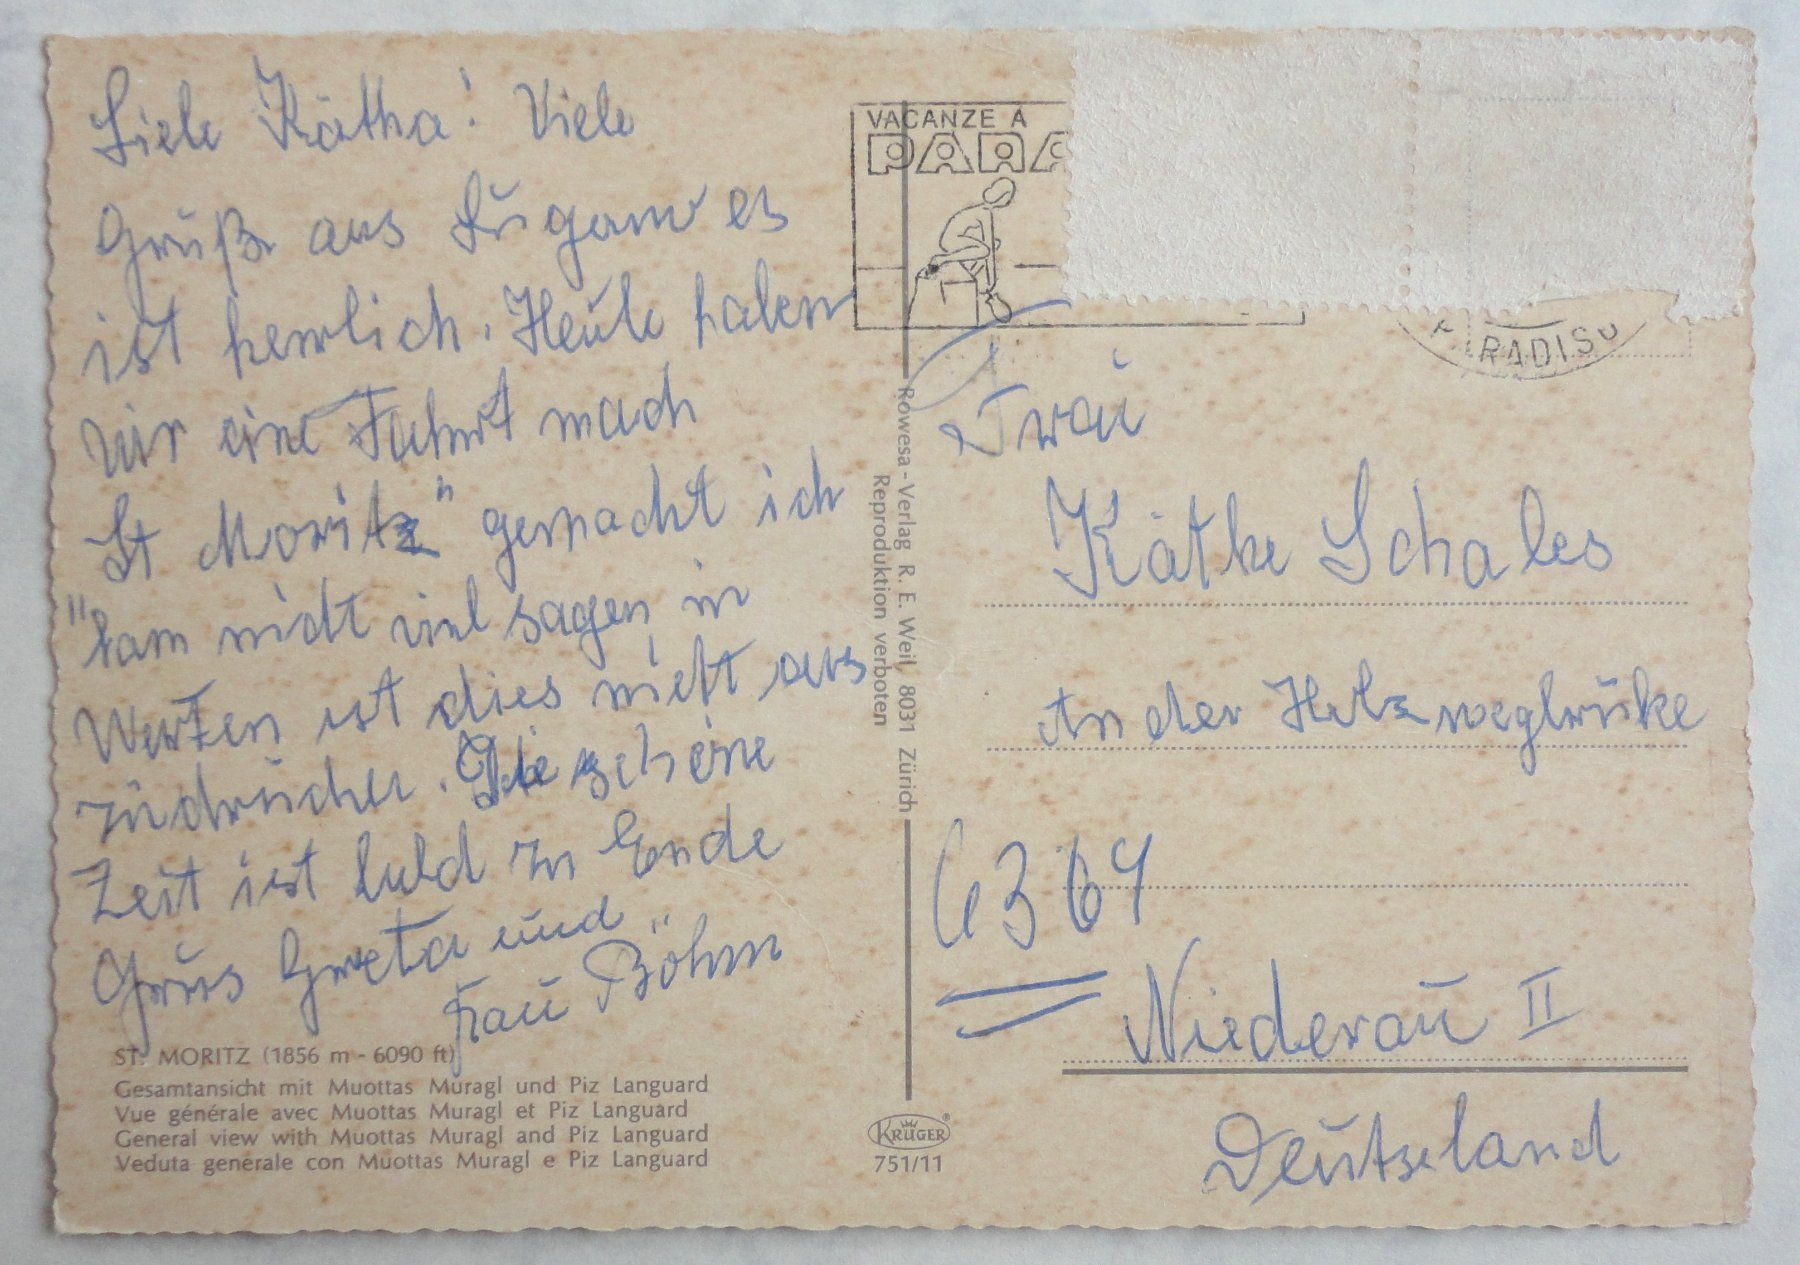 Liebe Kätha! Viele
Grüße aus Lugano es
ist herrlich. Heute haben
wir eine Fahrt nach
St Moritz" gemacht ich
"kam nicht viel sagen in
Worten ist dies nicht aus
zudrücken. Die schöne
Zeit ist bald zu Ende
Gruss Greta und
Frau Böhm
ST. MORITZ (1856 m - 6090 ft)
Gesamtansicht mit Muottas Muragl und Piz Languard
Vue générale avec Muottas Muragl et Piz Languard
General view with Muottas Muragl and Piz Languard
Veduta generale con Muottas Muragl e Piz Languard
Rowesa - Verlag R. E. Weil, 8031 Zürich
Reproduktion verboten
KRÜGER
751/11
VACANZE A
PARA
RADISO
Frau
Käthe Schales
An der Holzwegbrüke
6364
Niederau II
Deutschland